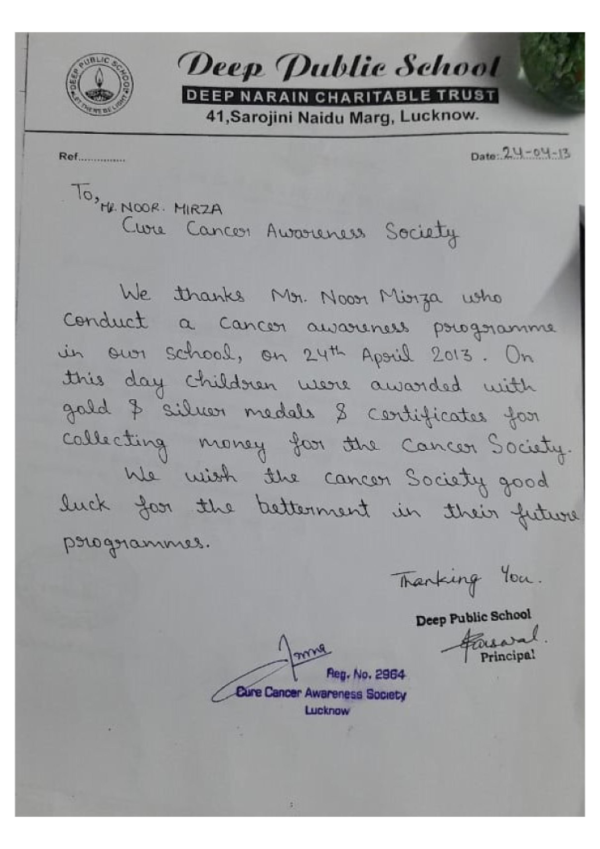 DEEP PUBLIC SCHOOL
LET THERE BE LIGHT
Deep Public School
DEEP NARAIN CHARITABLE TRUST
41,Sarojini Naidu Marg, Lucknow.
Ref............... Date:.24-04-13
To,
Mr. NOOR. MIRZA
Cure Cancer Awareness Society
We thanks Mr. Noor Mirza who
conduct a cancer awareness programme
in our school, on 24th April 2013. On
this day children were awarded with
gold & silver medals & certificates for
collecting money for the Cancer Society.
We wish the cancer Society good
luck for the betterment in their future
programmes.
Thanking You.
Deep Public School
Principal
Reg. No. 2964
Cure Cancer Awareness Society
Lucknow